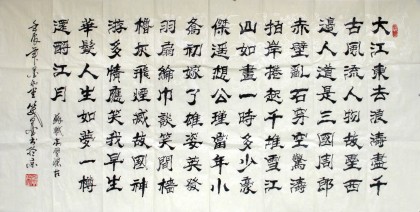 大江東去浪濤盡千
古風流人物故壘西
邊人道是三國周郎
赤壁亂石穿空驚濤
拍岸捲起千堆雪江
山如畫一時多少豪
傑遥想公瑾當年小
喬初嫁了雄姿英發
羽扇綸巾談笑間檣
櫓灰飛煙滅故國神
游多情應笑我早生
華髮人生如夢一樽
還酹江月
蘇軾
壬辰年